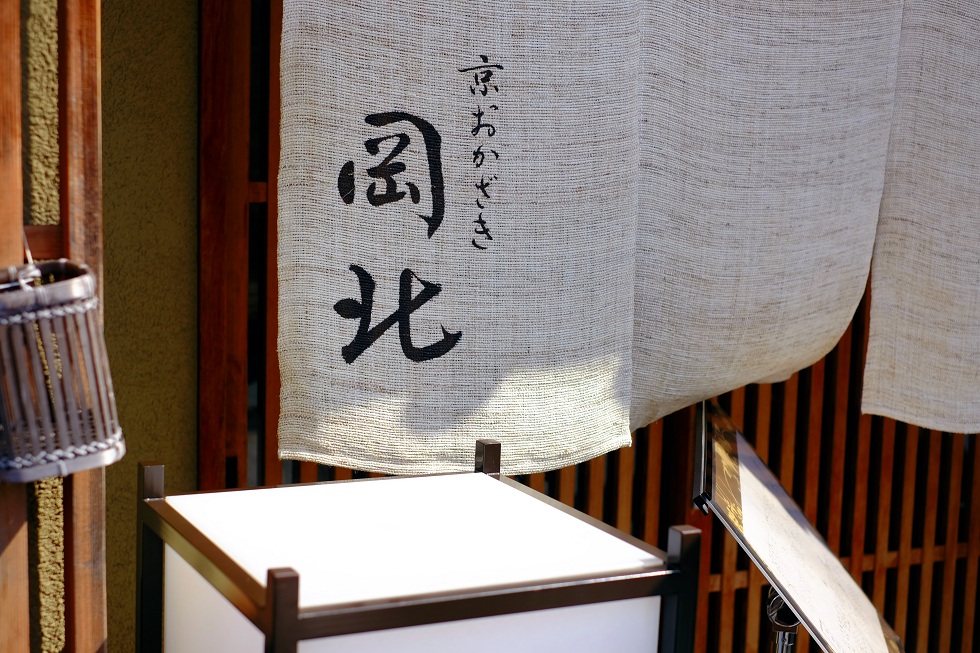 京おかざき
岡北